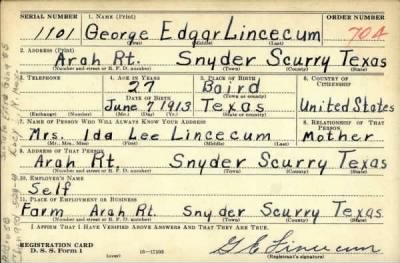 SERIAL NUMBER 1. NAME (Print) ORDER NUMBER
1101 George Edgar Lincecum 70A
(First) (Middle) (Last)
2. ADDRESS (Print)
Arah Rt. Snyder Scurry Texas
(Number and street or R. F. D. number) (Town) (County) (State)
3. TELEPHONE 4. AGE IN YEARS 5. PLACE OF BIRTH 6. COUNTRY OF CITIZENSHIP
27 Baird
(Town or county)
DATE OF BIRTH
June 7 1913 Texas United States
(Exchange) (Number) (Mo.) (Day) (Yr.) (State or country)
7. NAME OF PERSON WHO WILL ALWAYS KNOW YOUR ADDRESS 8. RELATIONSHIP OF THAT PERSON
Mrs. Ida Lee Lincecum Mother
(Mr., Mrs., Miss) (First) (Middle) (Last)
9. ADDRESS OF THAT PERSON
Arah Rt. Snyder Scurry Texas
(Number and street or R. F. D. number) (Town) (County) (State)
10. EMPLOYER'S NAME
Self
11. PLACE OF EMPLOYMENT OR BUSINESS
Farm Arah Rt. Snyder Scurry Texas
(Number and street or R. F. D. number) (Town) (County) (State)
I AFFIRM THAT I HAVE VERIFIED ABOVE ANSWERS AND THAT THEY ARE TRUE.
REGISTRATION CARD
D. S. S. Form 1 (over) 16—17105 G E Lincecum
(Registrant's signature)